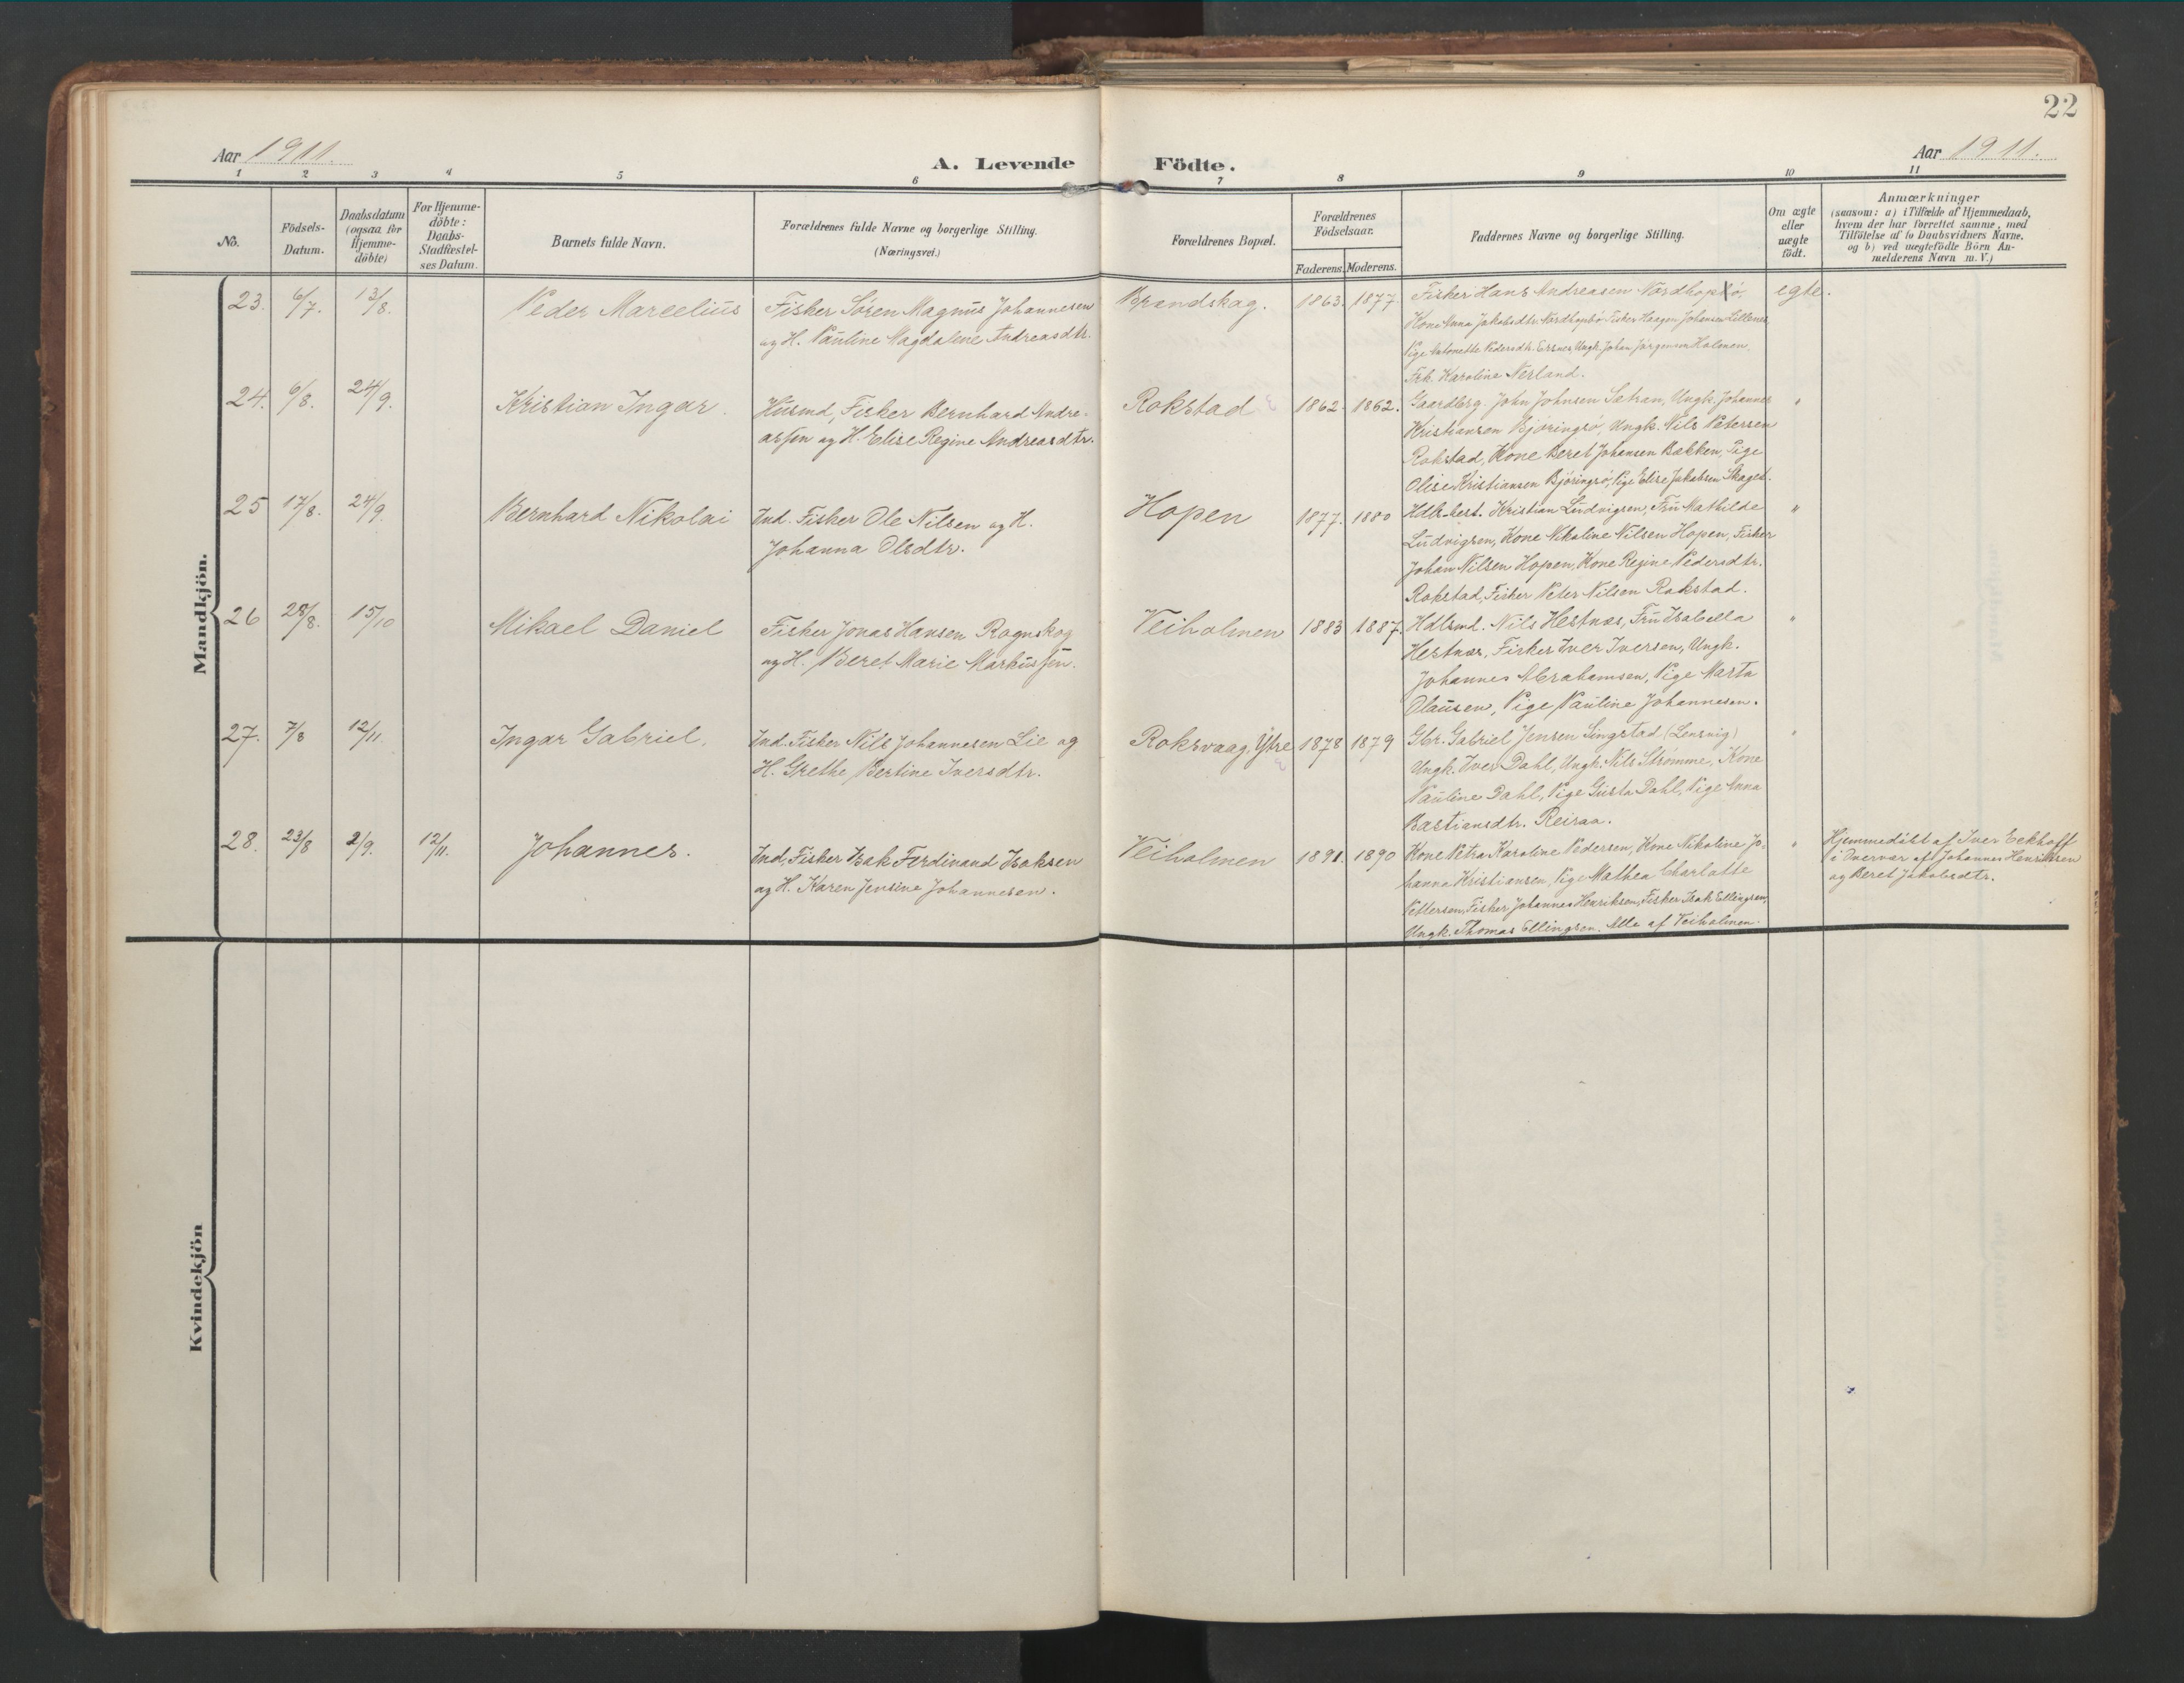 22
Aar 1911.
A. Levende Födte.
Aar 1911.
1 2 3 4 5 6 7 8 9 10 11
No.
Födsels-
Datum.
Daabsdatum
(ogsaa for
Hjemme-
döbte)
For Hjemme-
döbte:
Daabs-
Stadfæstel-
ses Datum.
Barnets fulde Navn.
Forældrenes fulde Navne og borgerlige Stilling.
(Næringsvei.)
Forældrenes Bopæl.
Forældrenes
Födselsaar.
Faderens. Moderens.
Faddernes Navne og borgerlige Stilling.
Om ægte
eller
uægte
födt.
Anmærkninger
(saasom: a) i Tilfælde af Hjemmedaab,
hvem der har forrettet samme, med
Tilföielse af to Daabsvidners Navne.
og b) ved uægtefödte Börn An-
melderens Navn m. V.)
Mandkjön.
23. 6/7. 13/8. Peder Marcelius
Fisker Sören Magnus Johannesen
og H. Pauline Magdalene Andreasdtr.
Brandskag. 1863. 1877.
Fisker Hans Andreasen Nordhopsö,
Kone Anna Jakobsdtr. Nordhopsö Fisker Haagen Johansen Lillenes,
Pige Antonette Pedersdtr. Ersnes, Ungk. Johan Jörgensen Holmen.
Frk. Karoline Nerland.
egte.
24. 6/8. 24/9. Kristian Ingar.
Husmd, Fisker Bernhard Andre-
assen og H. Elise Regine Andreasdtr.
Rokstad 1862. 1862.
Gaardbrg. John Johnsen Sætran, Ungk. Johannes
Kristiansen Björingsö, Ungk. Nils Petersen
Rokstad, Kone Beret Johansen Bækken, Pige
Olise Kristiansen Björingsö, Pige Elise Jakobsen Skaget.
"
25 17/8. 24/9. Bernhard Nikolai
Ind. Fisker Ole Nilsen og H.
Johanna Olsdtr.
Hopen 1877. 1880
Hdls-best. Kristian Ludvigsen, Fru Mathilde
Ludvigsen, Kone Nikoline Nilsen Hopen, Fisker
Johan Nilsen Hopen, Kone Regine Pedersdtr.
Rokstad, Fisker Peter Nilsen Rokstad.
"
26 28/8. 15/10 Mikael Daniel
Fisker Jonas Hansen Rognskog
og H. Beret Marie Markussen.
Veiholmen 1883 1887.
Hdlsmd. Nils Hestnæs, Fru Isabella
Hestnæs, Fisker Iver Iversen, Ungk.
Johannes Abrahamsen, Pige Marta
Olausen, Pige Pauline Johannesen.
"
27. 7/8 12/11. Ingar Gabriel.
Ind. Fisker Nils Johannesen Lie og
H. Grethe Bertine Iversdtr.
Roksvaag, Ytre 1878 1879
Gbr. Gabriel Jensen Singstad (Lensvig)
Ungk. Iver Dahl, Ungk. Nils Strömme, Kone
Pauline Dahl, Pige Gusta Dahl, Pige Anna
Bastiansdtr. Reiraa.
"
28. 23/8 2/9. 12/11. Johannes.
Ind, Fisker Isak Ferdinand Isaksen
og H. Karen Jensine Johannesen.
Veiholmen 1891. 1890
Kone Petra Karoline Pedersen, Kone Nikoline Jo-
hanna Kristiansen, Pige Mathea Charlotte
Pettersen, Fisker Johannes Henriksen, Fisker Isak Ellingsen,
Ungk. Thomas Ellingsen. Alle af Veiholmen.
"
Hjemmedöbt af Iver Eckhoff
i Overvær af Johannes Henriksen
og Beret Jakobsdtr.
Kvindekjön